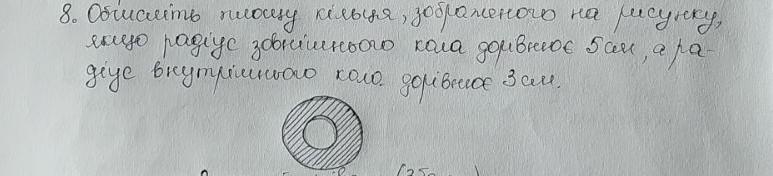 8. Обчисліть площу кільця, зображеного на рисунку,
якщо радіус зовнішнього кола дорівнює 5 см, а ра-
діус внутрішнього кола дорівнює 3 см.